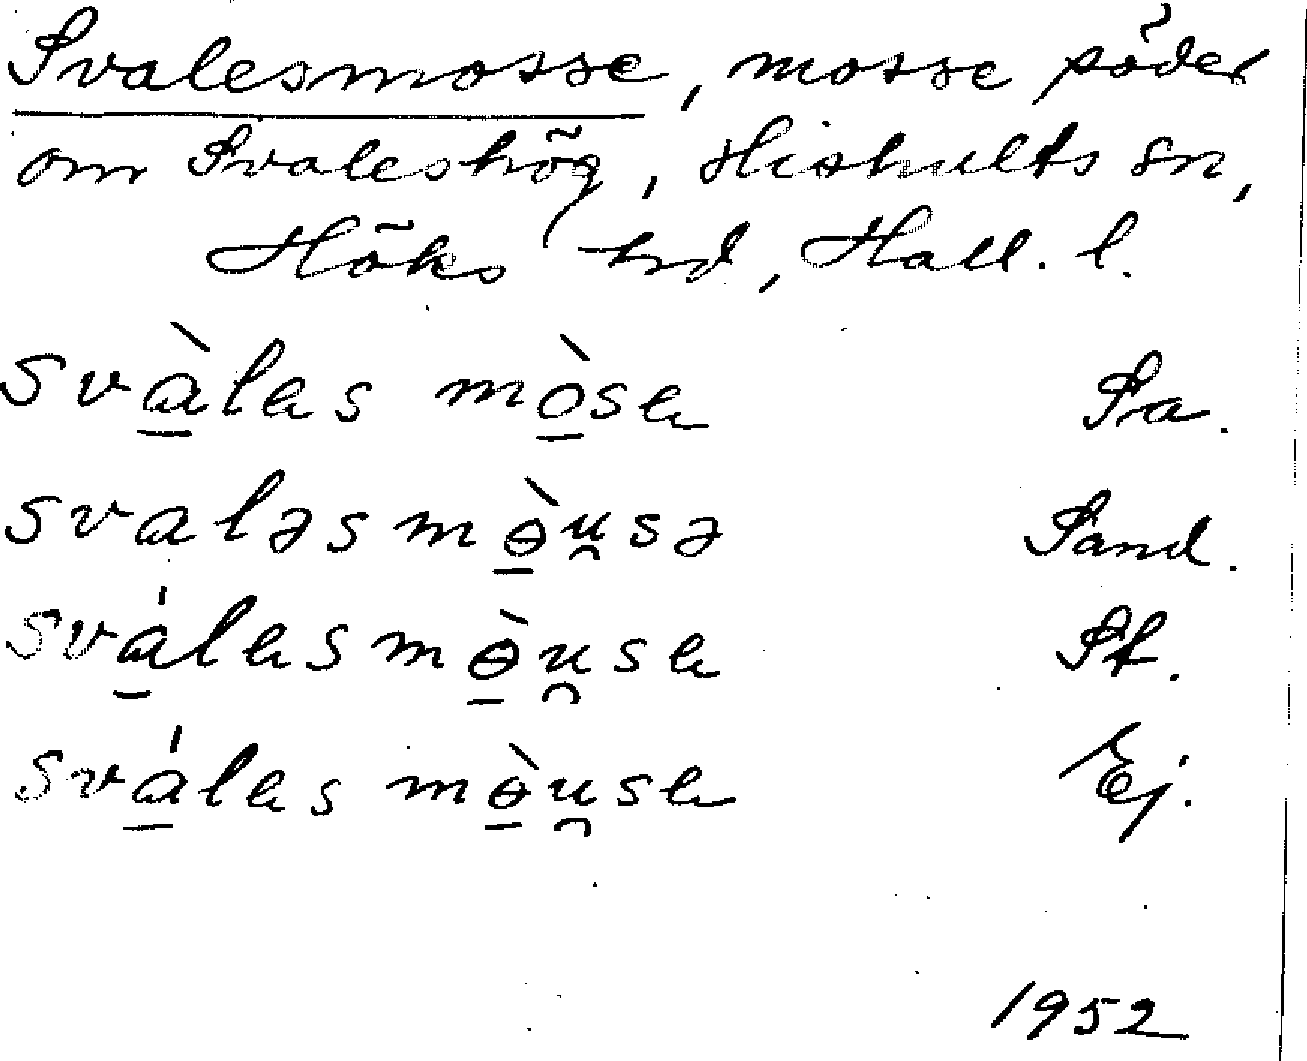 Svalesmosse, mosse söder
om Svaleshög, Hishults sn,
Höks hd, Hall. l.
svà̱les mò̱se Sa.
svaləsmɵ̱̀u̯sə Sand.
svá̱lesmɵ̱̀u̯se St.
svá̱lesmɵ̱̀u̯se Ej.
1952